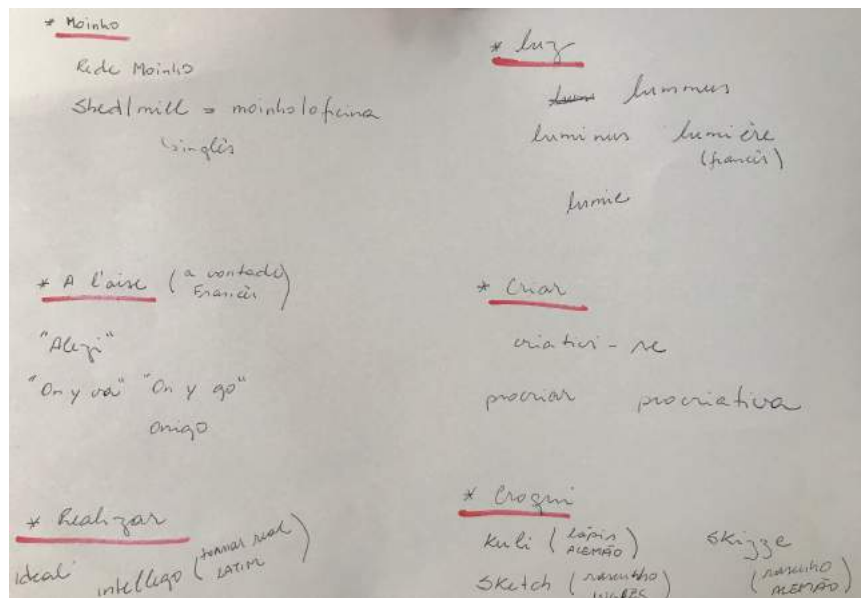 * Moinho
Rede Moinho
Shed/mill = moinho/oficina
inglês
* A l'aise (a vontade
Francês)
"Alezi"
"On y va" "On y go"
onigo
* Realizar
ideal
intellego (tornar real
LATIM)
* luz
lummus
luminus lumière
(francês)
lumie
* Criar
criativi-se
procriar procriativa
* Croqui
Kuli (lápis
ALEMÃO)
Skizze
(rascunho
ALEMÃO)
Sketch (rascunho
INGLÊS